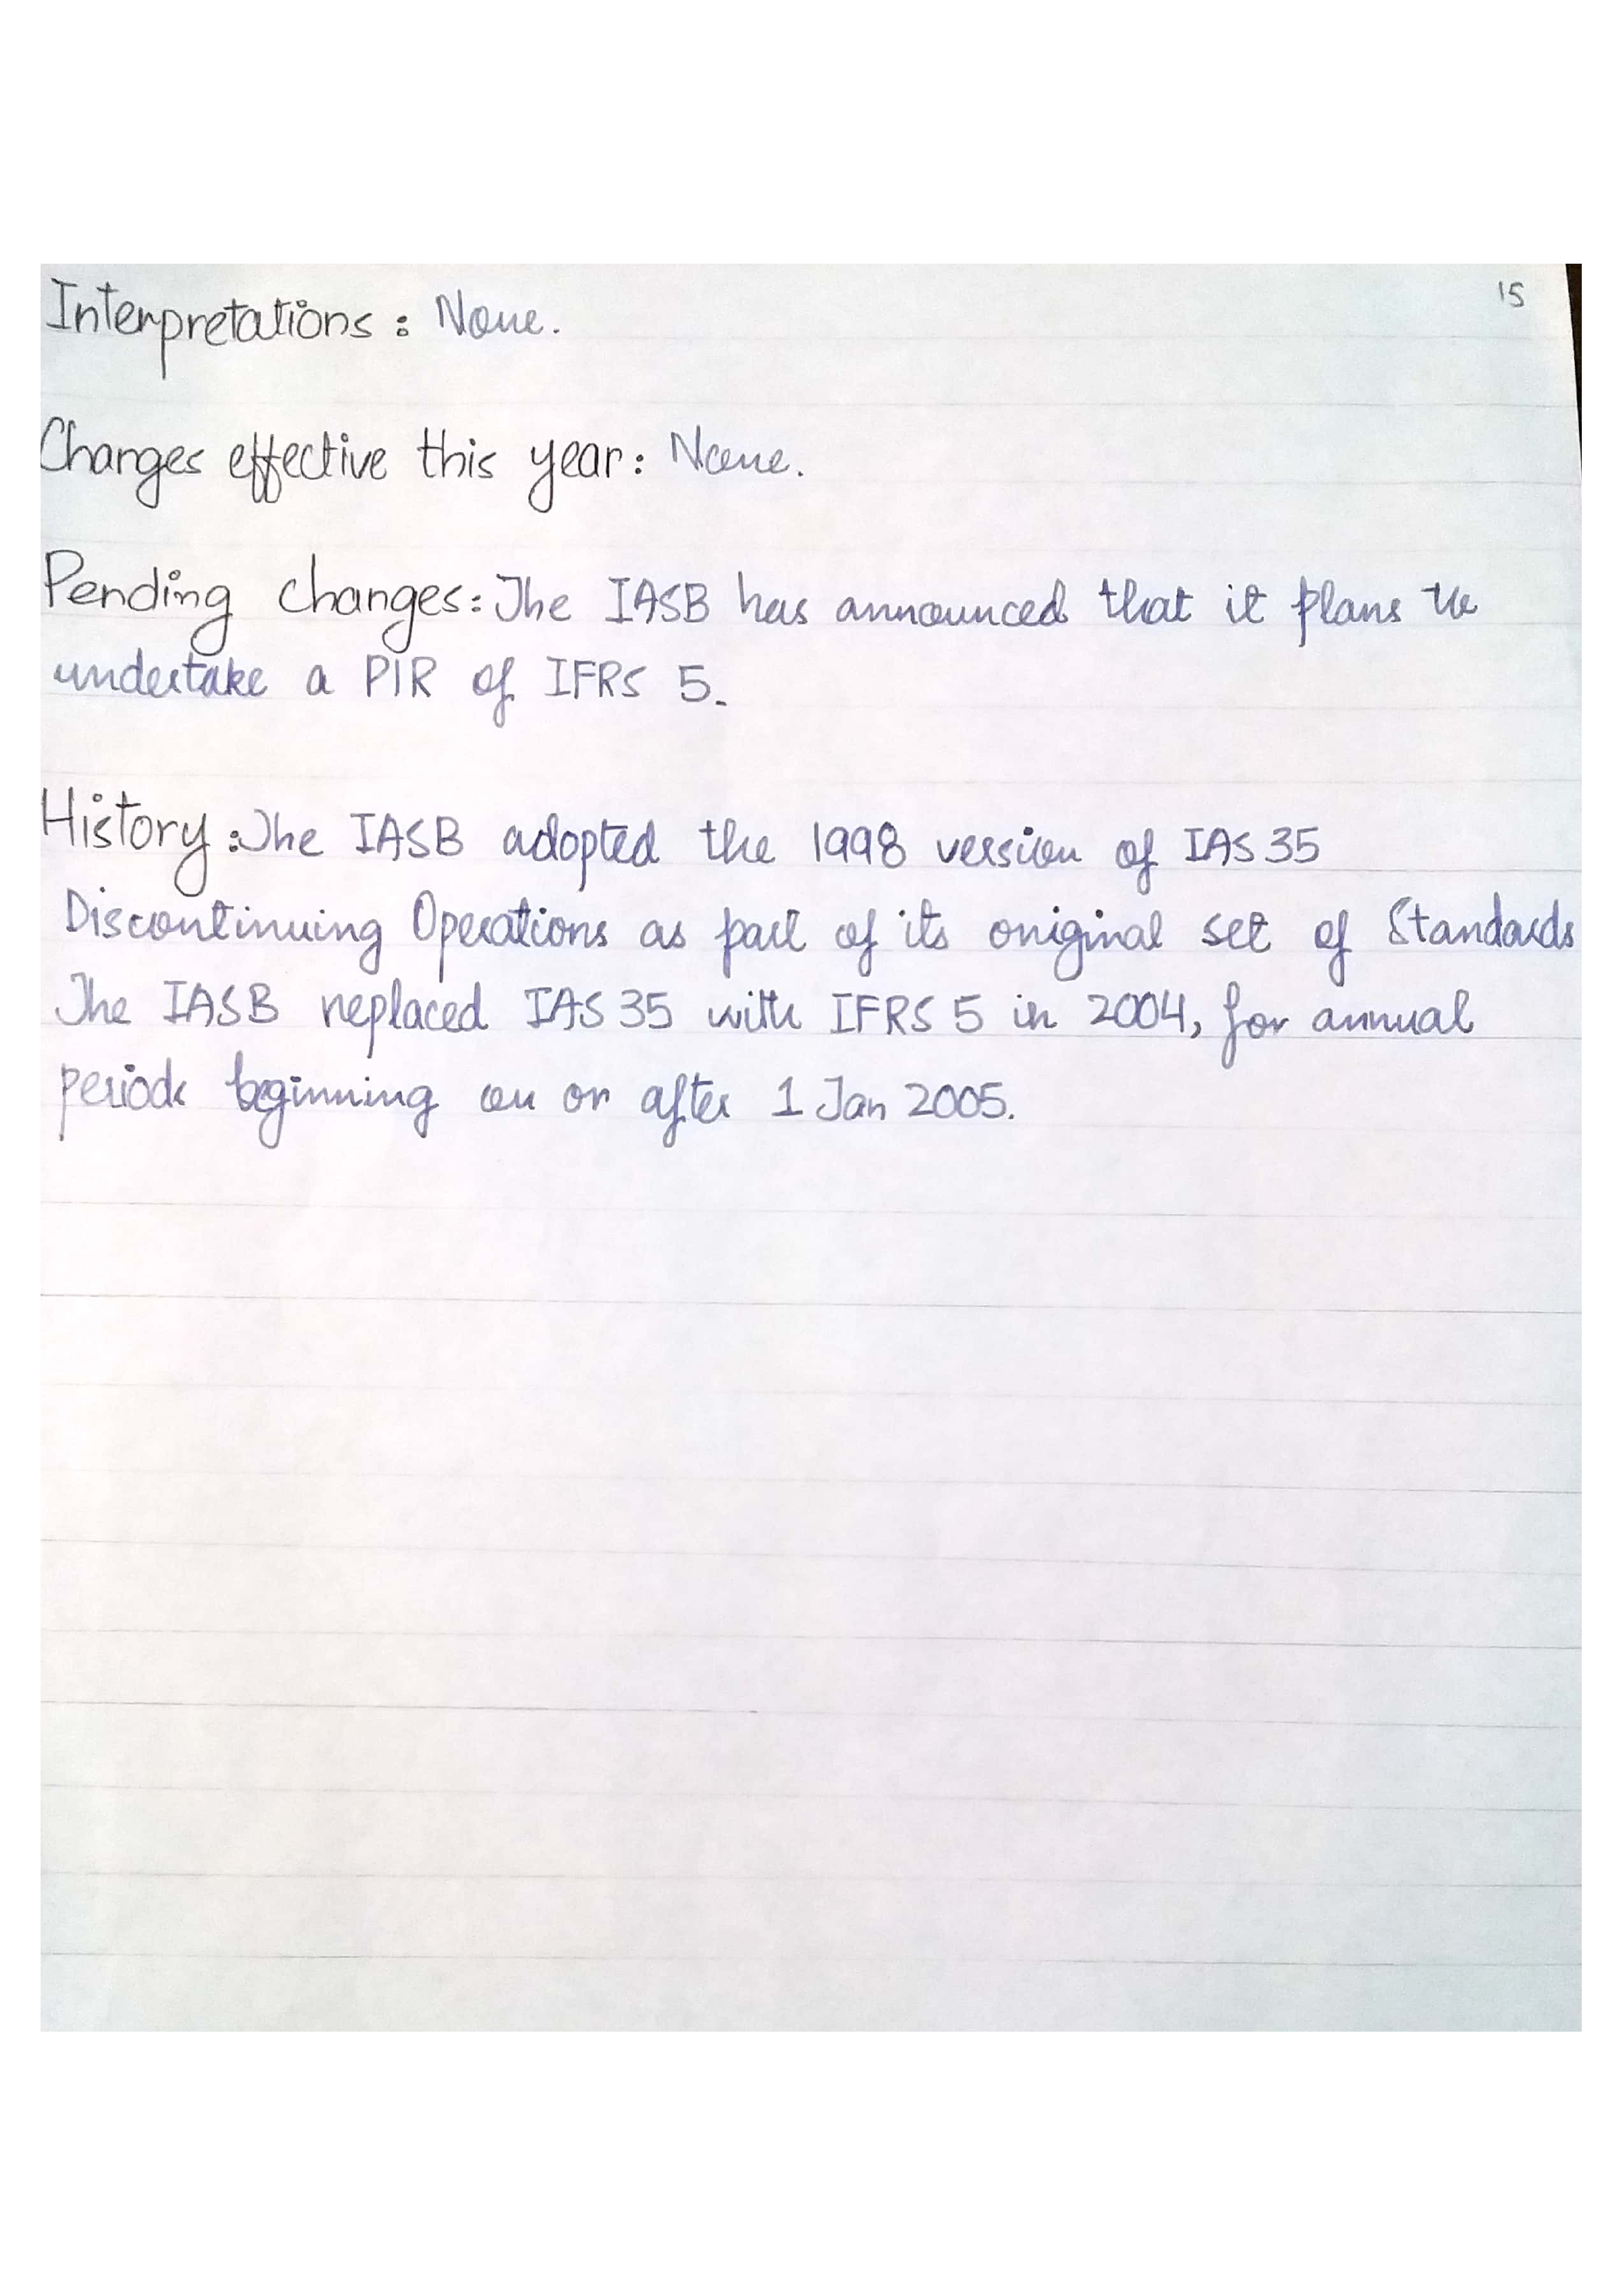 15
Interpretations: None.
Changes effective this year: None.
Pending changes: The IASB has announced that it plans to
undertake a PIR of IFRS 5.
History: The IASB adopted the 1998 version of IAS 35
Discontinuing Operations as part of its original set of Standards
The IASB replaced IAS 35 with IFRS 5 in 2004, for annual
periods beginning on or after 1 Jan 2005.